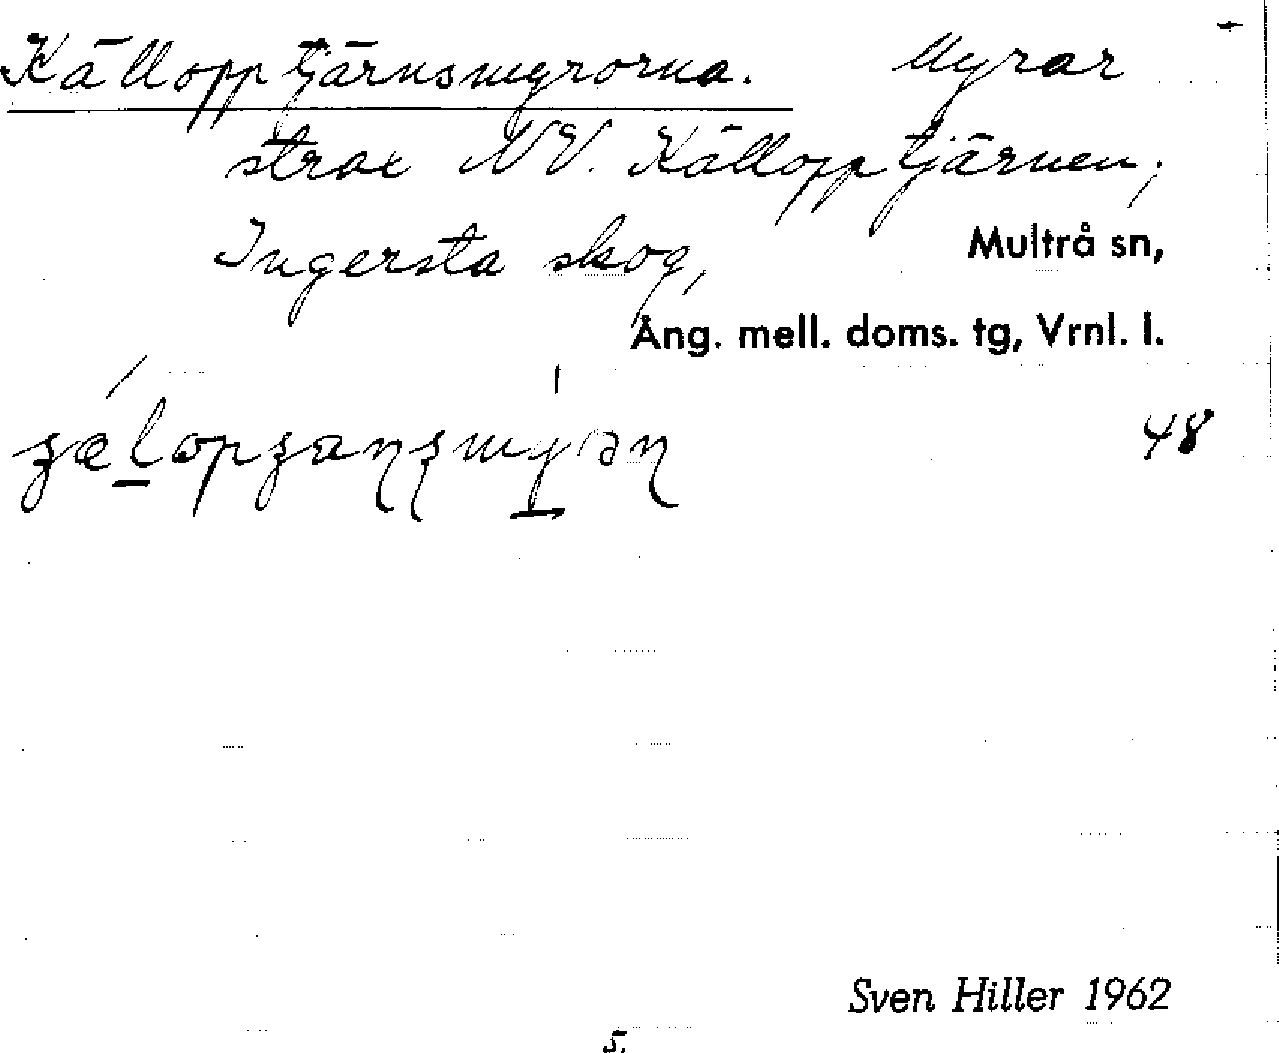 Källopptjärnsmyrorna. Myrar
strax NV. Källopptjärnen,
Ingersta skog, Multrå sn,
Ång. mell. doms. tg, Vrnl. l.
48
Sven Hiller 1962
5.